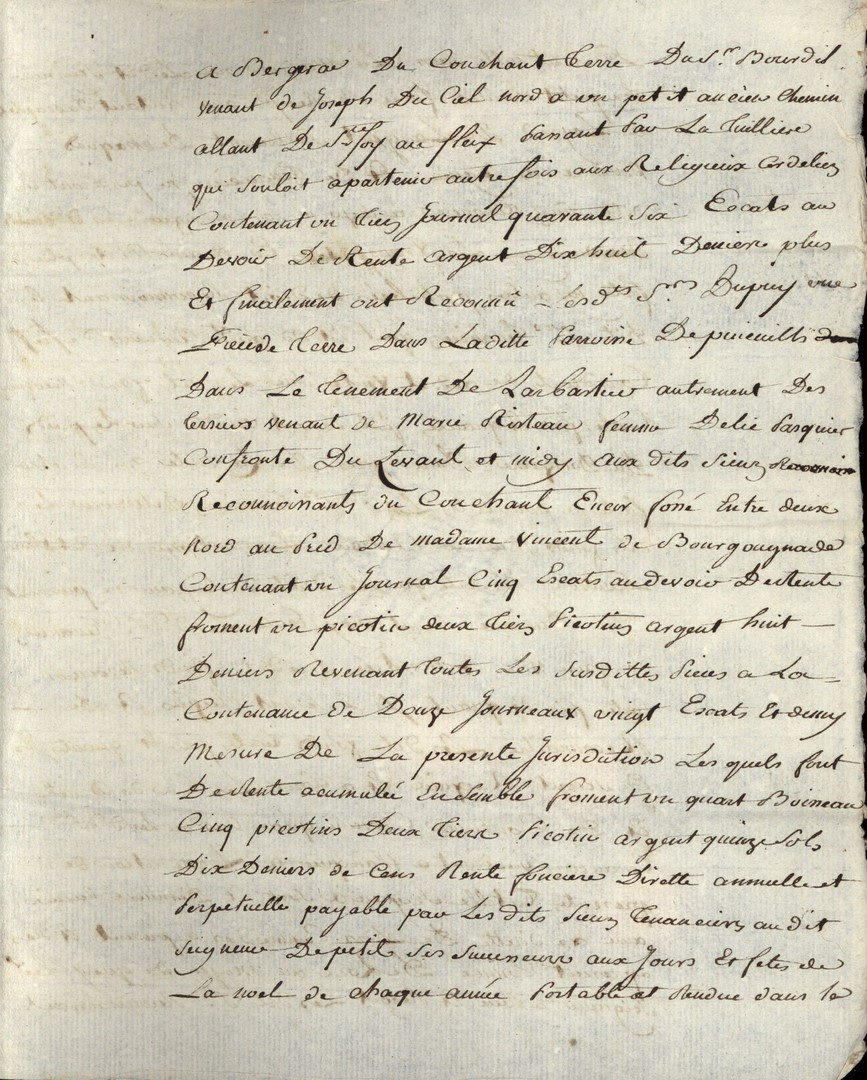 a Bergerac Du Couchant Terre Du Sr. Bourdil
venant de Joseph Du Ciel nord a un petit ancien chemin
allant De Ste foy au fleix Passant Par La Tuilliere
qui souloit apartenir autre fois aux Religieux Cordeliers
Contenant un Tiers Journal quarante Six Escats au
Devoir De Rente argent Dix huit Deniers plus
Et finalement ont Reconnû Lesdts. Srs. Dupuy une
Piece de Terre Dans Laditte Parroisse De pineuilh
Dans Le Tenement De Larbartier autrement Des
Terriers venant de Marie Risteau femme Delie Pasquier
Confronte Du Levant et midy aux dits Sieurs
Reconnoissants du Couchant Encor fossé Entre deux
Nord au Pred De madame Vincent de Bourgougnade
Contenant un Journal Cinq Escats au devoir De Rente
froment un picotin deux Tiers Picotins argent huit
Deniers Revenant Toutes Les Susdittes Pieces a La
Contenance de Douze Journeaux vingt Escats Et demy
Mesure De La presente Jurisdiction Les quels font
De Rente acumulée Ensemble froment un quart Boisseau
Cinq picotins Deux Tiers Picotin argent quinze Sols
Dix Deniers de Cens Rente fonciere Dirette annuelle et
Perpetuelle payable par Les dits Sieurs Tenanciers au dit
Seigneur De petit Ses Successeurs aux Jours Et fetes de
La noel de chaque année Portable et Rendue dans le